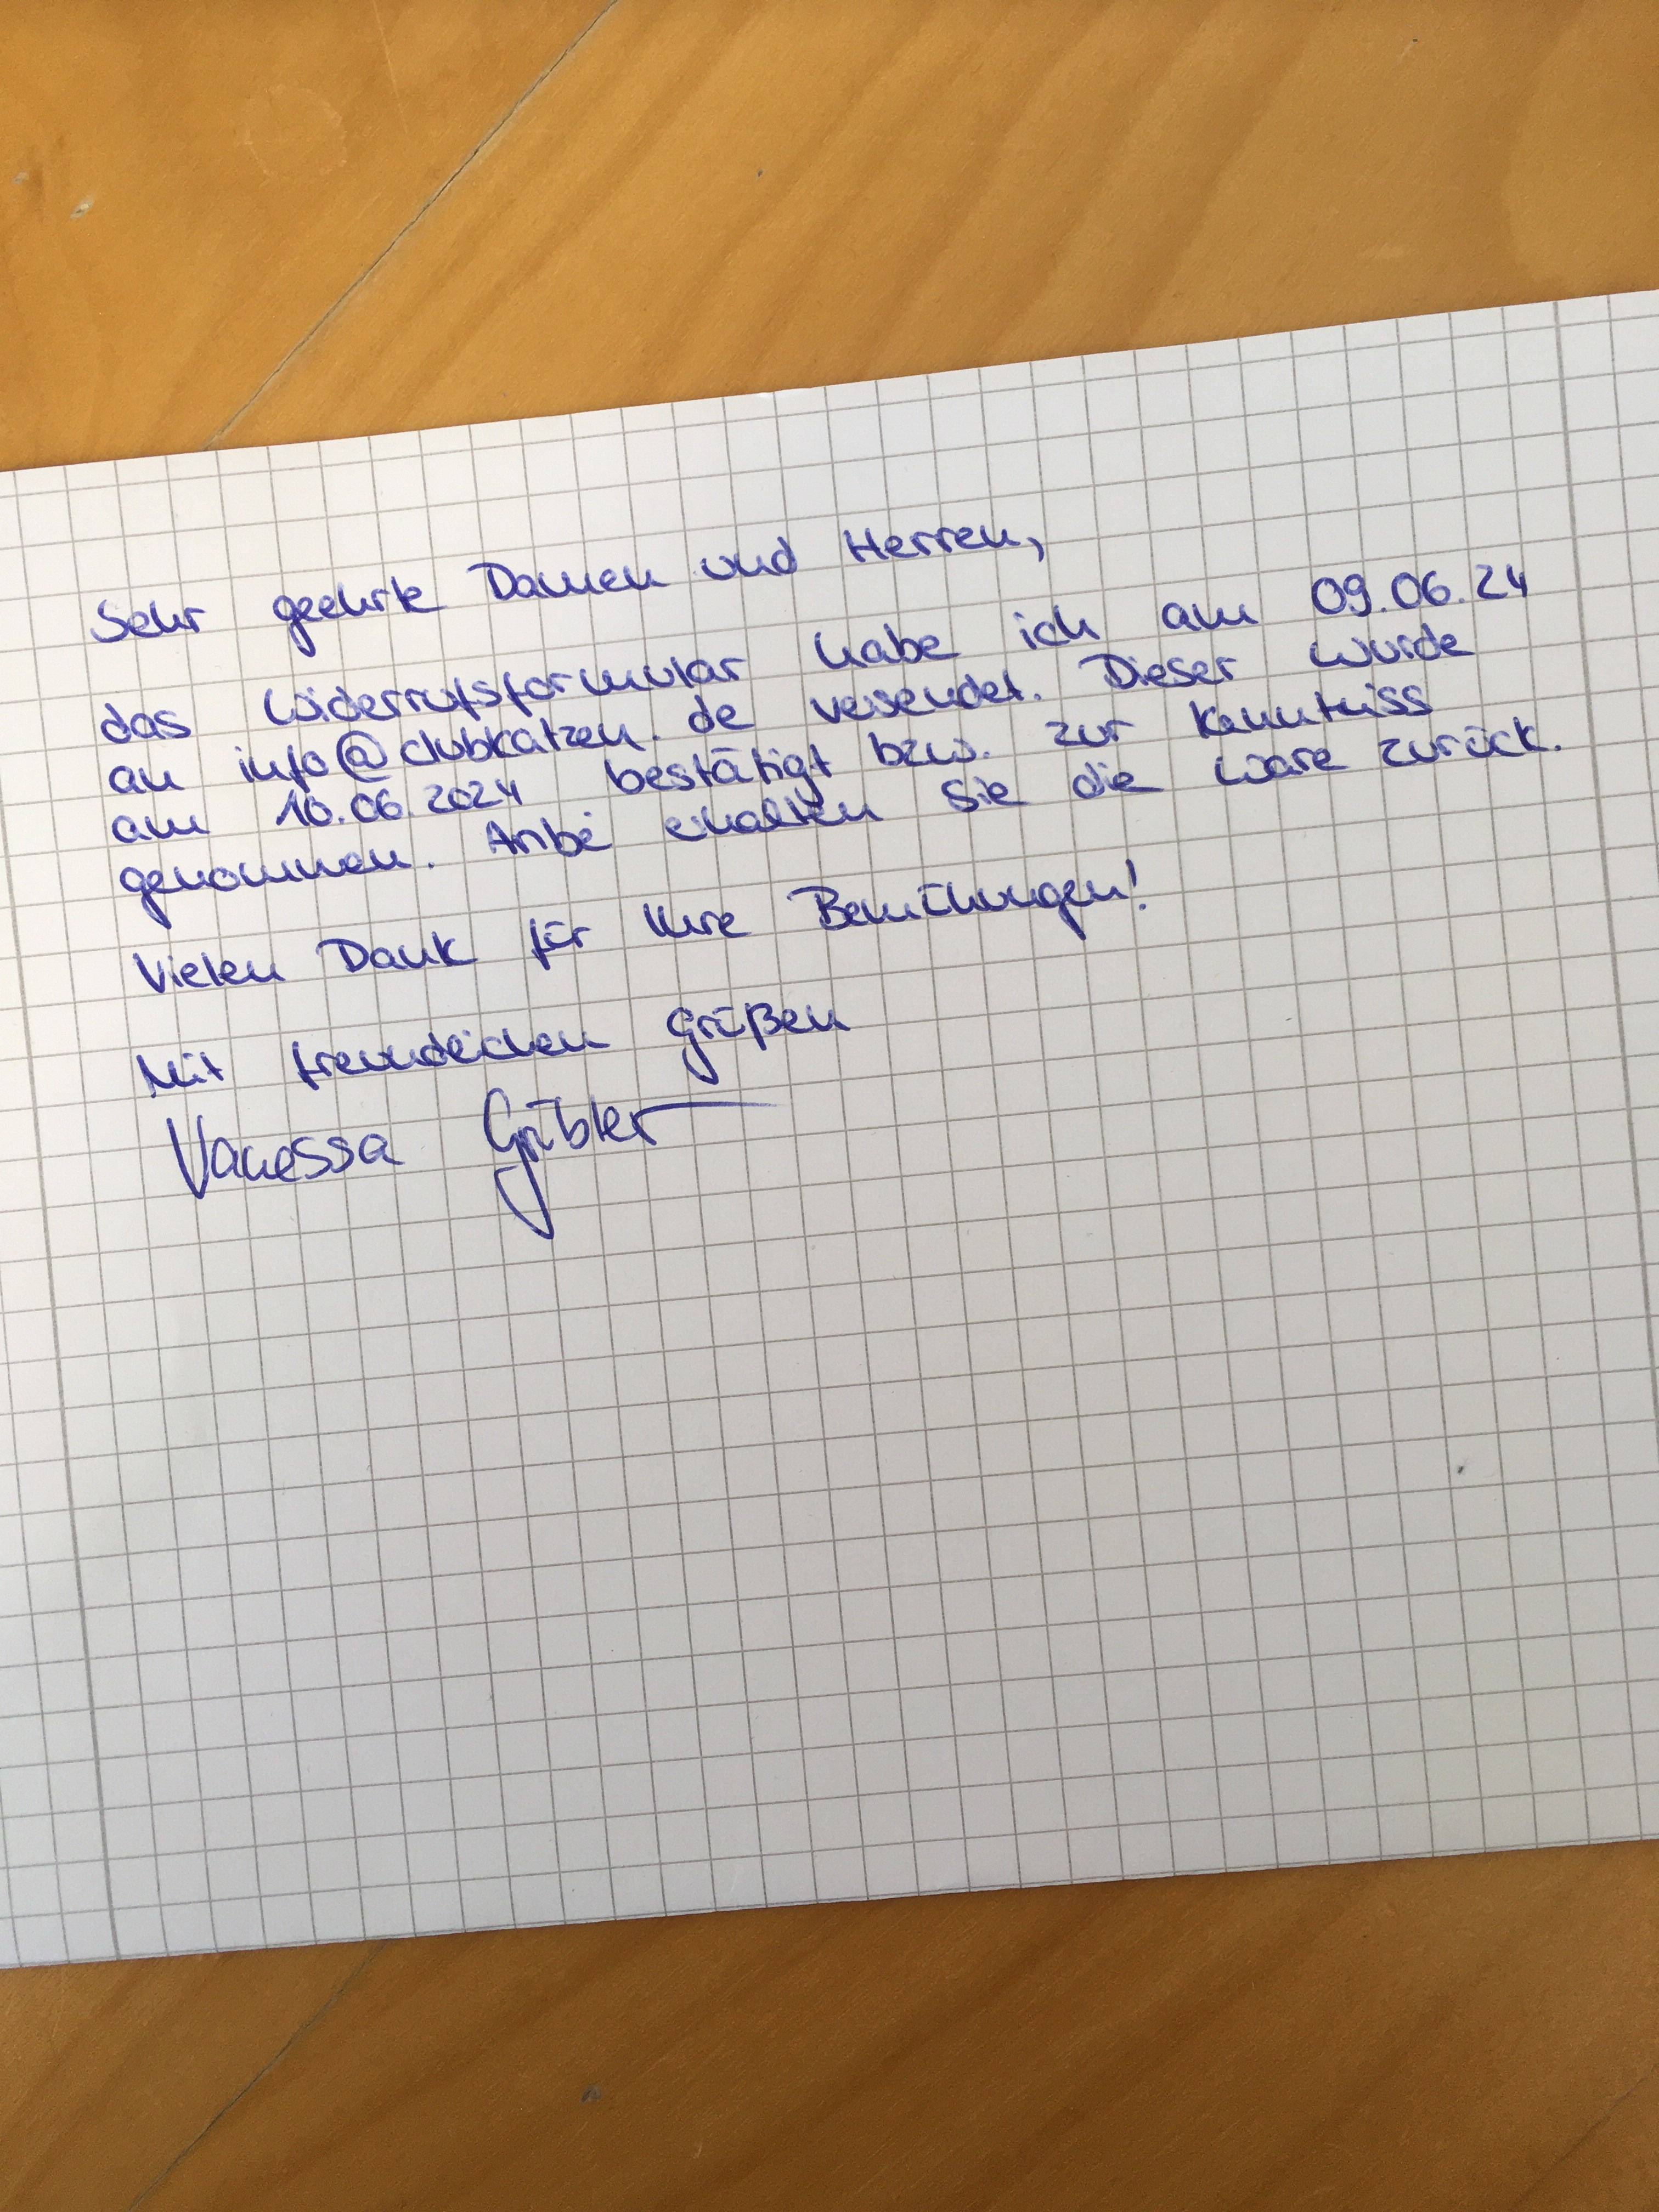 Sehr geehrte Damen und Herren,
das Widerrufsformular habe ich am 09.06.24
an info@clubkatzen.de versendet. Dieser wurde
am 10.06.2024 bestätigt bzw. zur Kenntniss
genommen. Anbei erhalten Sie die Ware zurück.
Vielen Dank für Ihre Bemühungen!
Mit freundlichen Grüßen
Vanessa Gribler